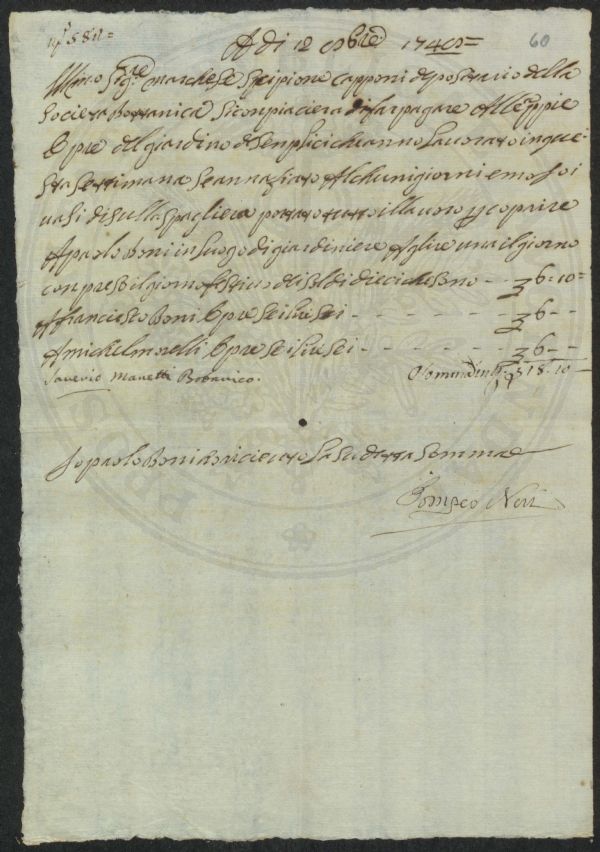 A di 12 9bre 1740=
60
Illmo Sigre Marchese Scipione Capponi depositario della
Societa Bottanica si conpiacera di far pagare Alle
Opre del giardino de Senplici che anno Lauorato in que
sta Settimana Se annafiato Alchuni giorni e mosso i
uasi di sulla Spagliera portato tutto il p coprire
A paolo Boni in luogo di giardiniere A lire una il giorno
conpreso il giorno festiuo di Soldi dieci che sono - - £ 6 - 10 =
A Francesco Boni Opre Sei lire Sei - - - - - £ 6 - -
A michel morelli Opre Sei lire Sei - - - - - £ 6 - -
Saverio Manetti Botanico.
£ 18 - 10 -
Io paolo Boni o riceuuto La Sudetta Somma
Pompeo Neri